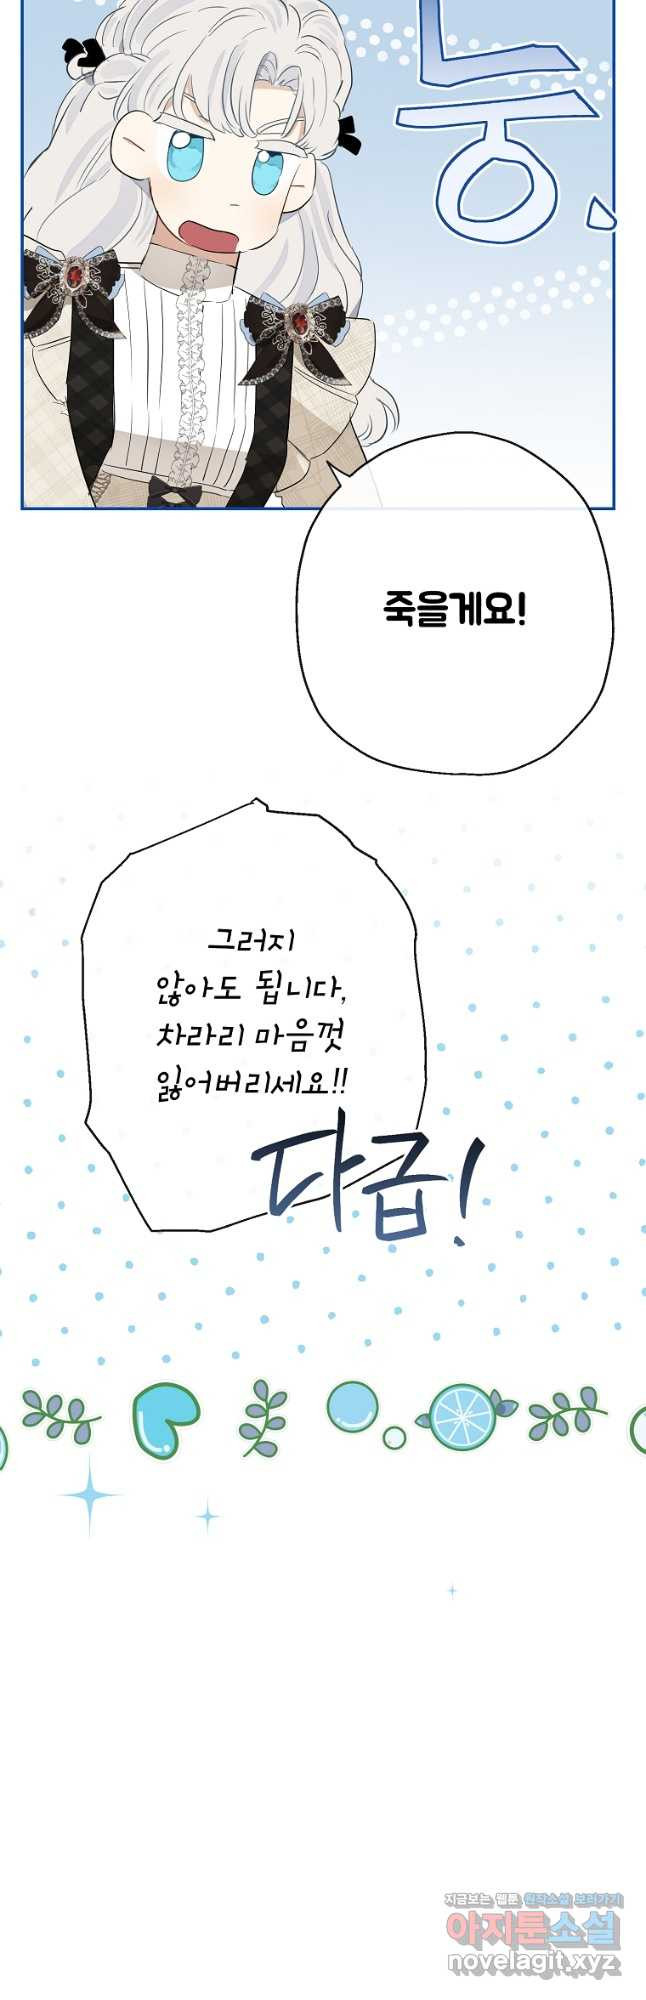 둥.
죽을게요!
그러지
않아도 됩니다,
차라리 마음껏
잃어버리세요!!
다급!
지금보는 웹툰 원작소설 보러가기
아지툰소설
novelagit.xyz